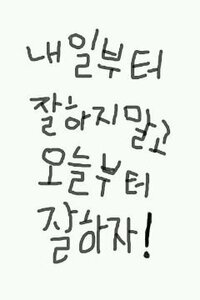 내일부터
잘하지말고
오늘부터
잘하자!